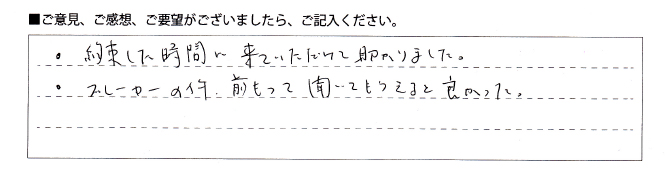 ■ご意見、ご感想、ご要望がございましたら、ご記入ください。
・約束した時間に来ていただけて助かりました。
・ブレーカーの件、前もって聞いてもらえると良かった。